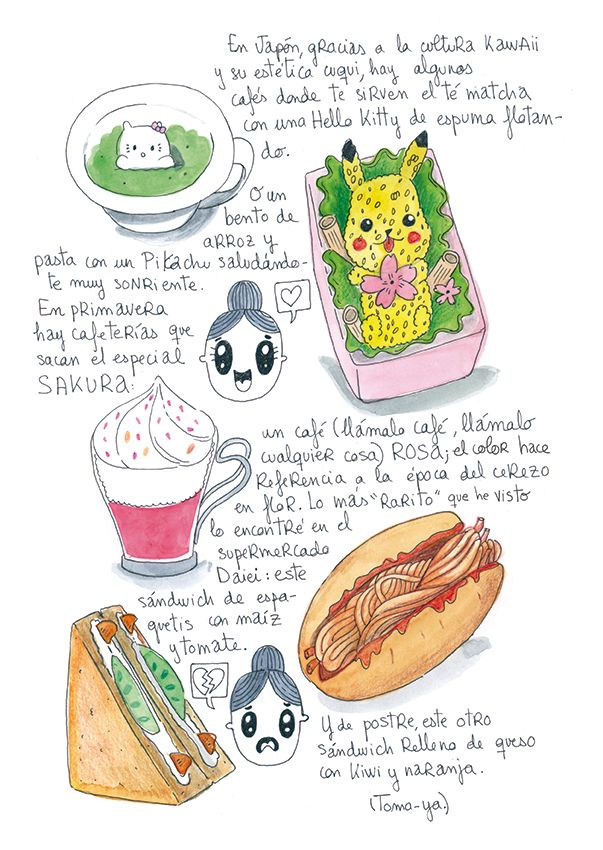 En Japón, gracias a la cultura Kawaii
y su estética cuqui, hay algunos
cafés donde te sirven el té matcha
con una Hello Kitty de espuma flotan-
do.
O un
bento de
arroz y
pasta con un Pikachu saludándo-
te muy sonriente.
En primavera
hay cafeterías que
sacan el especial
SAKURA:
un café (llámalo café, llámalo
cualquier cosa) ROSA; el color hace
referencia a la época del cerezo
en flor. Lo más "rarito" que he visto
lo encontré en el
supermercado
Daiei: este
sándwich de espa-
guetis con maíz
y tomate.
Y de postre, este otro
sándwich relleno de queso
con kiwi y naranja.
(Toma-ya.)